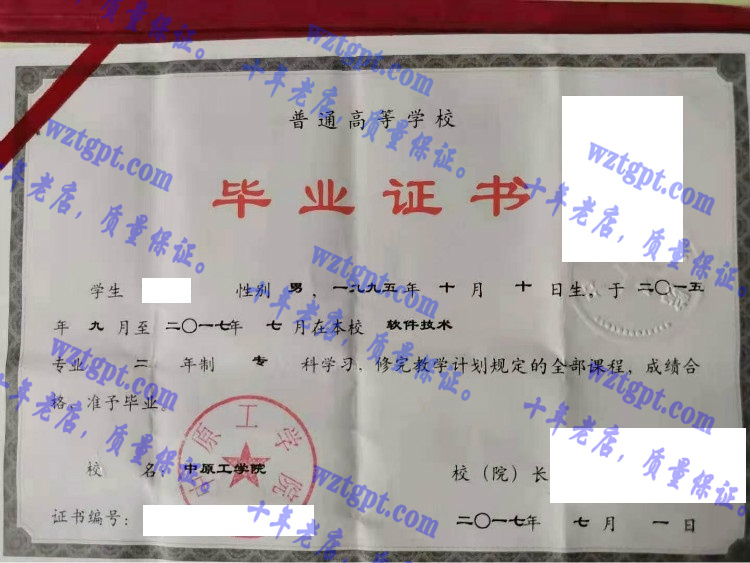 普通高等学校
毕业证书
学生 性别 男 ，一九九五年 十 月 十 日生，于 二〇一五
年 九 月至 二〇一七年 七 月在本校 软件技术
专业 二 年制 专 科学习，修完教学计划规定的全部课程，成绩合
格，准予毕业。
中原工学院
校 名：中原工学院
校（院）长
证书编号：
二〇一七年 七 月 一 日
wztgpt.com
十年老店，质量保证。
wztgpt.com
十年老店，质量保证。
wztgpt.com
十年老店，质量保证。
wztgpt.com
十年老店，质量保证。
wztgpt.com
十年老店，质量保证。
wztgpt.com
十年老店，质量保证。
wztgpt.com
十年老店，质量保证。
wztgpt.com
十年老店，质量保证。